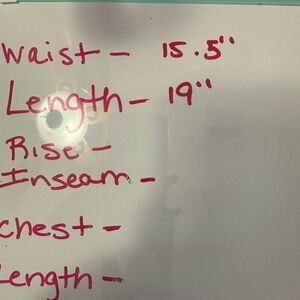 Waist - 15.5"
Length - 19"
Rise -
Inseam -
chest -
Length -